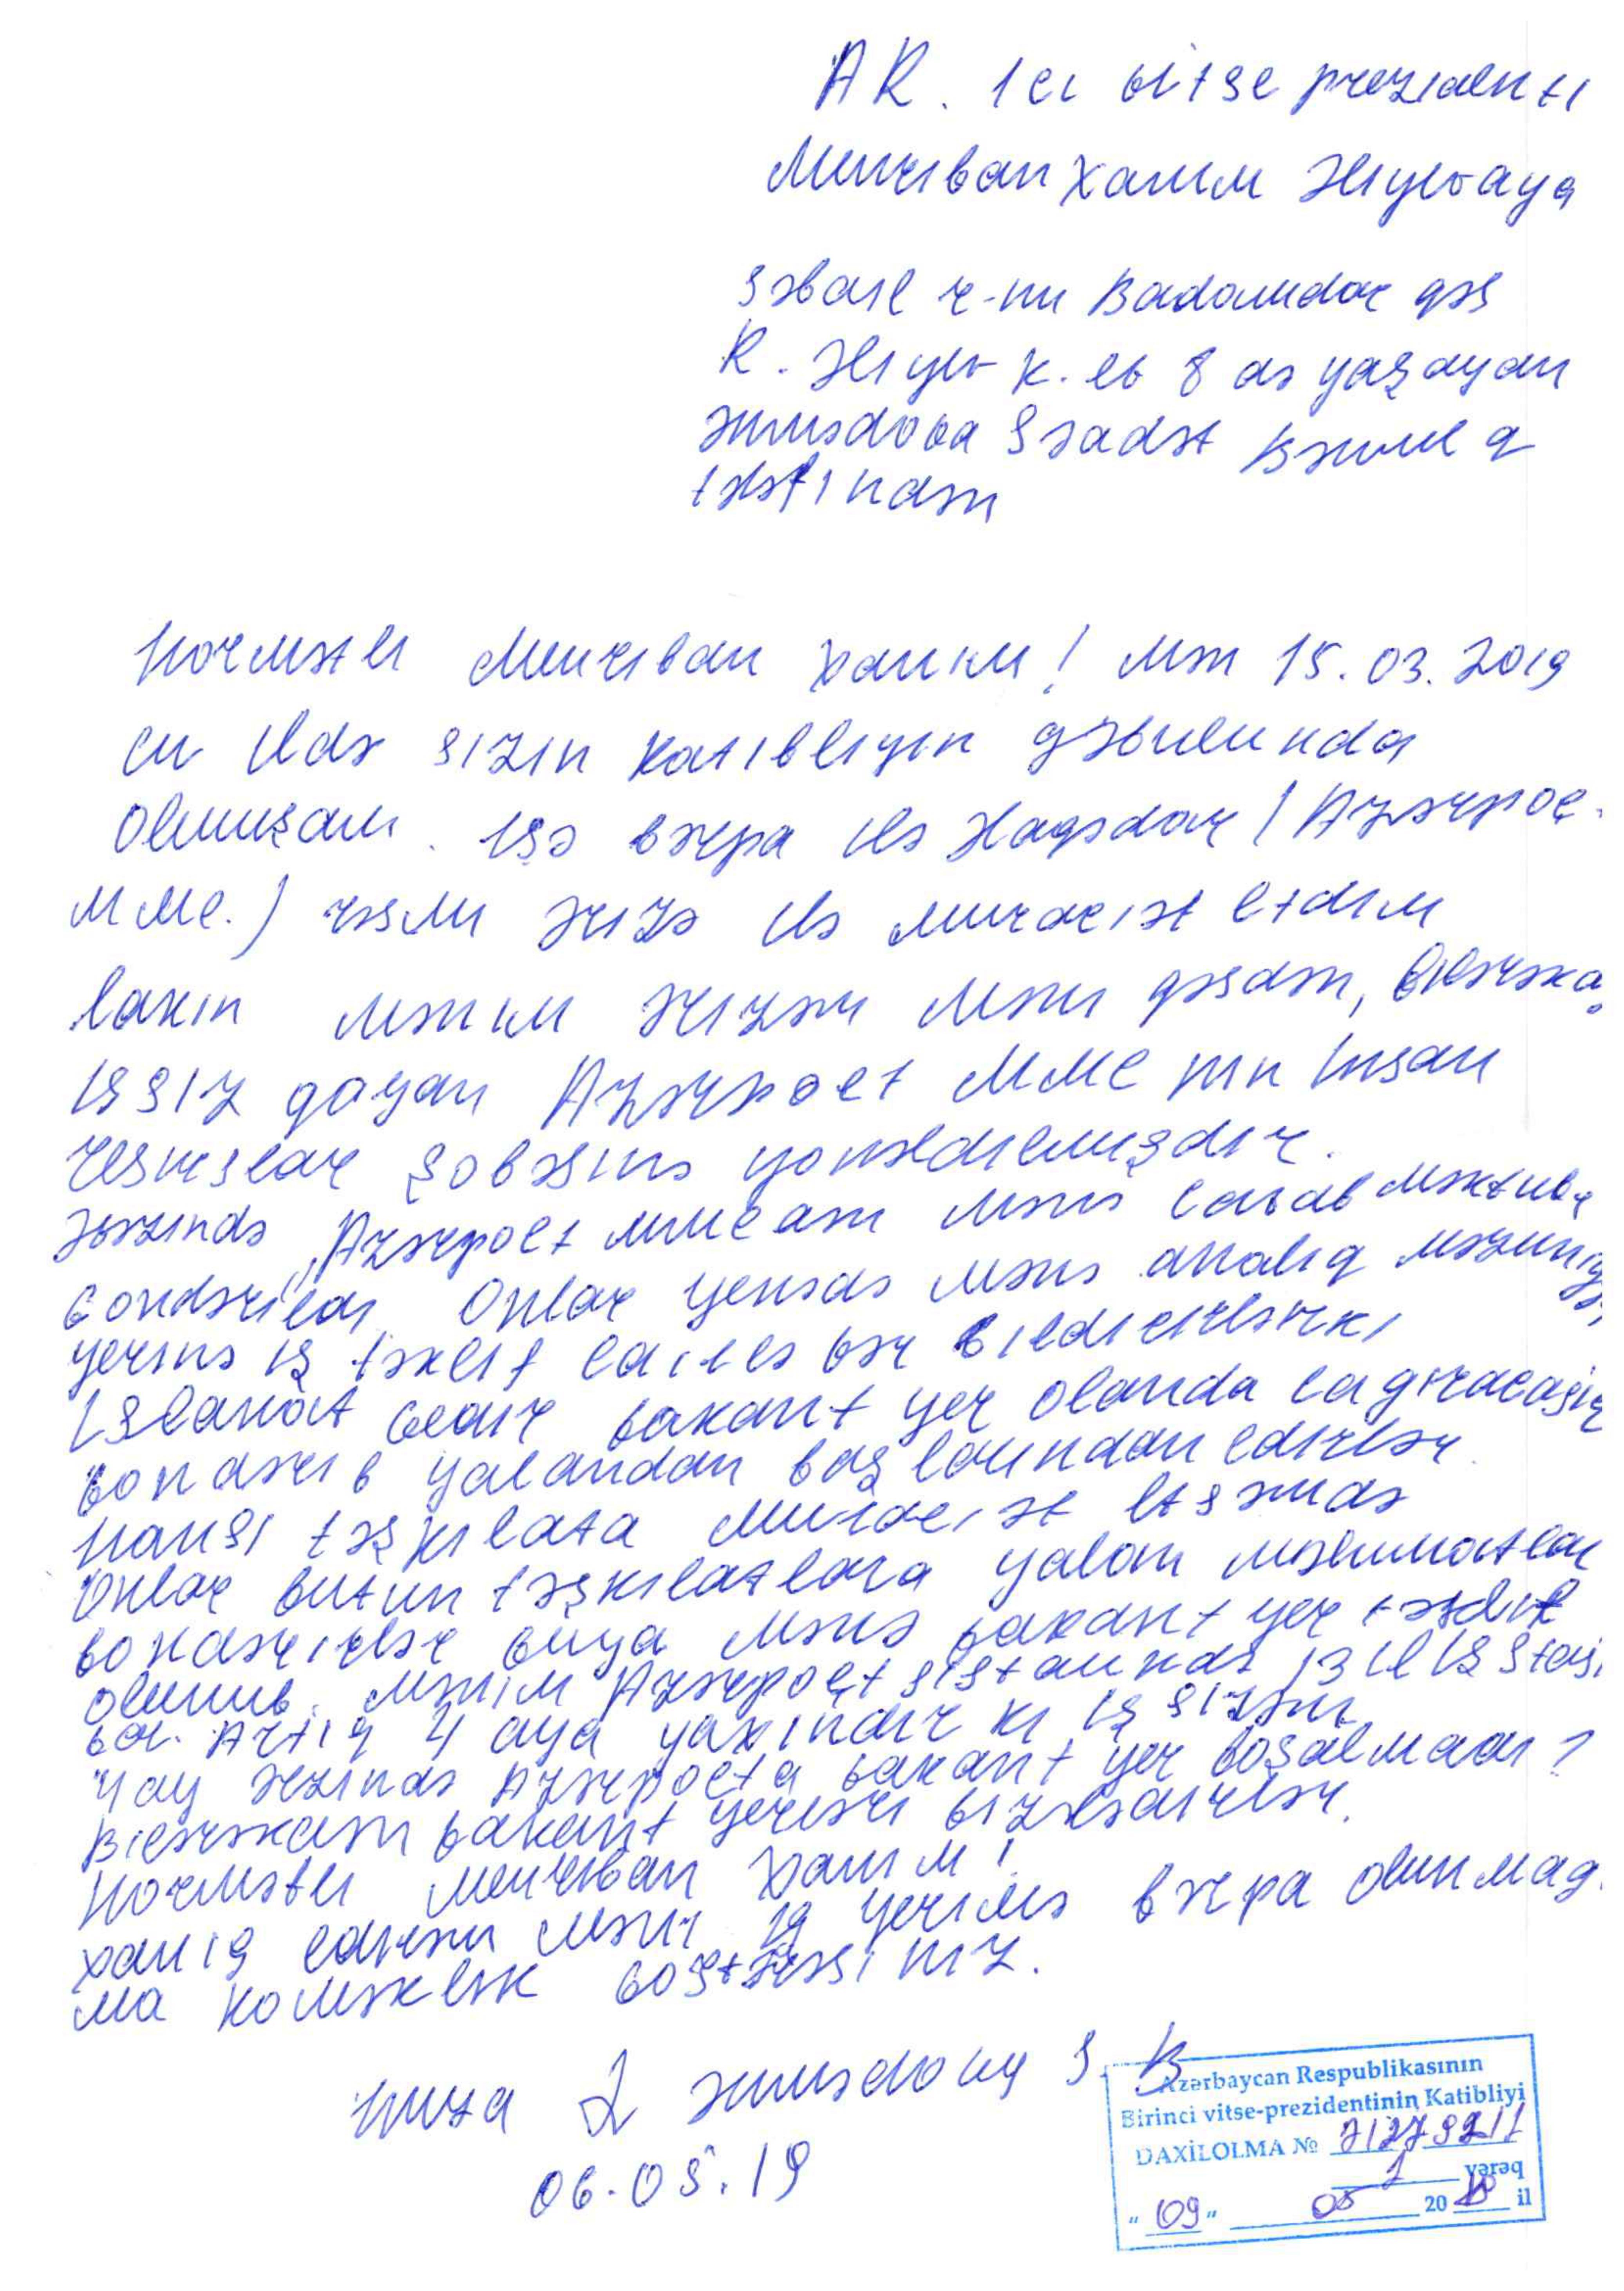 AR. 1 ci vitse prezidenti
Mehriban xanım Əliyevaya
Səbail r-nu Badamdar qəs
R. Əliyev k. ev 8 də yaşayan
Əhmədova Səadət
tərəfindən
Hörmətli Mehriban xanım! Mən 15.03.2019
cu ildə sizin katibliyin qəbulunda
olmuşam. İşə bərpa ilə əlaqədar (Azərpoç.
MMC.) rəsmi ərizə ilə müraciət etdim
lakin mənim ərizəm məni qəsdən, bilərəkdə
işsiz qoyan Azərpoçt MMC nin insan
resurslar şöbəsinə yonəldilmişdir.
Əvəzində "Azərpoçt" MMC dən mənə cavab məktubu
göndərildi Onlar yenədə mənə analıq məzuniyyə
yerinə iş təklif edirlər bildirirlərki
İslahat gedir vakant yer olanda çağıracağıq
göndərib yalandan başlarından edirlər.
Hansı təşkilata müraciət etsəmdə
Onlar bütün təşkilatlara yalan məlumatlar
göndərirlər guya mənə vakant yer təklif
olunub. Mənim Azərpoçt sistemində 13 il iş staji
var. Artıq 4 aya yaxındır ki işsizəm
4 ay ərzində Azərpoçta vakant yer boşalmadı?
Bilərəkdən vakant yerləri gizlədirlər.
Hörmətli Mehriban xanım!
Xahiş edirəm məni iş yerimə bərpa olunmağ.
ma köməklik göstərəsiniz.
İmza Əhmədova S. B
06.05.19
Azərbaycan Respublikasının
Birinci vitse-prezidentinin Katibliyi
DAXİLOLMA №
1 vərəq
" 09 " 05 20 il